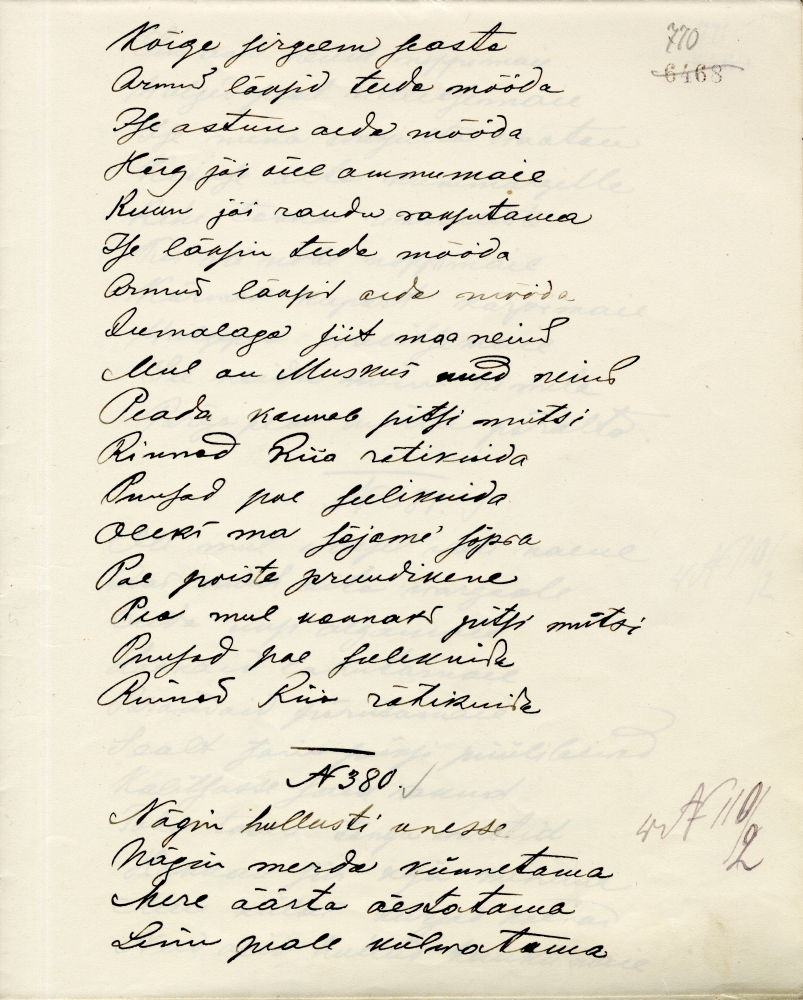 770
6468
Kõige sirgeem seasta
Armud läksid teeda mööda
Ise astun aeda mööda
Härg jäi õue ammumaie
Ruun jäi raudu raksutama
Ise läksin teeda mööda
Armud läksid aeda mööda
Jumalaga siit maa neiud
Mul on Muskus uued neiud
Peada kannab pitsi mütsi
Rinnad Riia rätikuida
Puusad poe seelikuida
Oleks ma sõjame sõpra
Poe poiste pruudikene
Pea mul kannaks pitsi mütsi
Puusad poe seelekuida
Rinnad Riia rätikuida
N 380.
Nägin hullusti unesse
Nägin merda künnetama
Mere äärta äestatama
Liiva peale külwatama
N 110/2